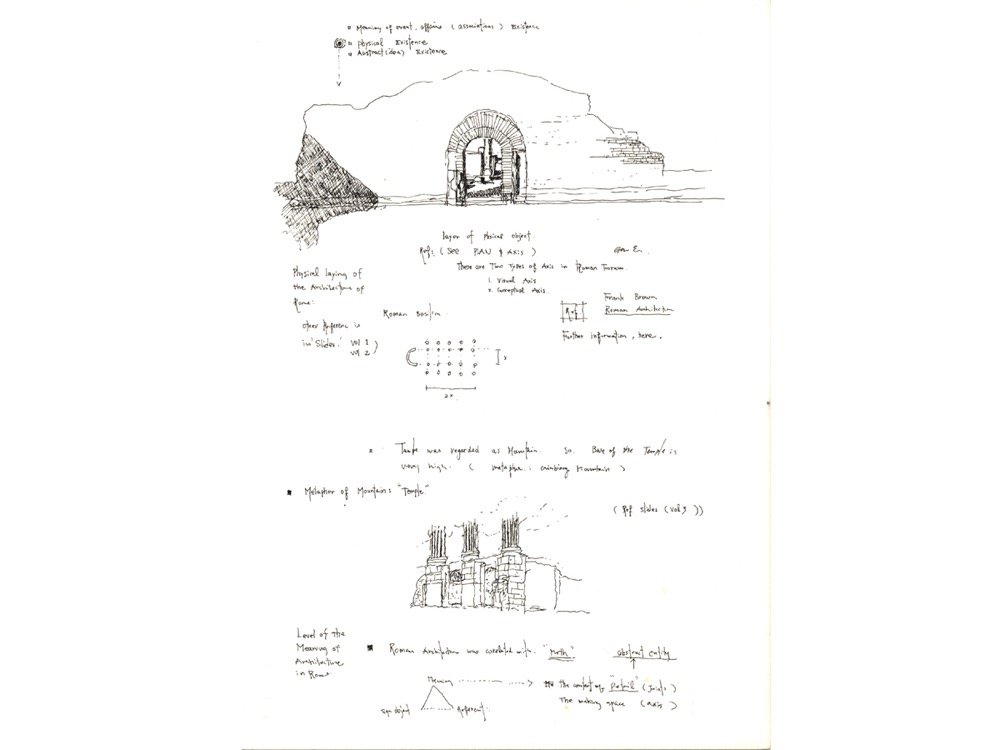 Meaning of event, affairs (associations) Existence
Physical Existence
Abstract (idea) Existence
layer of Phsical object.
Ref: (See PLAN & Axis.)
There are Two Types of Axis in Roman
1. Visual Axis
2. Conceptual Axis.
Physical laying of
the Architecture of
Rome:
other Reference is
in 'Slides.' Vol 1
Vol 2
Roman
Ref
Frank Brown
Roman Architecture
Further information, here.
x
2x
was regarded as Mountain. So. Base of the Temple is
very high. (metaphor: climbing Mountain)
Metaphor of Mountain: "Temple"
(Ref slides (Vol 3))
Level of the
Meaning of
Architecture
in Rome
Roman Architecture was correlated with. "Myth" abstract entity
Meaning the "Detail" (Joints)
The making space (axis)
Sign object Referent